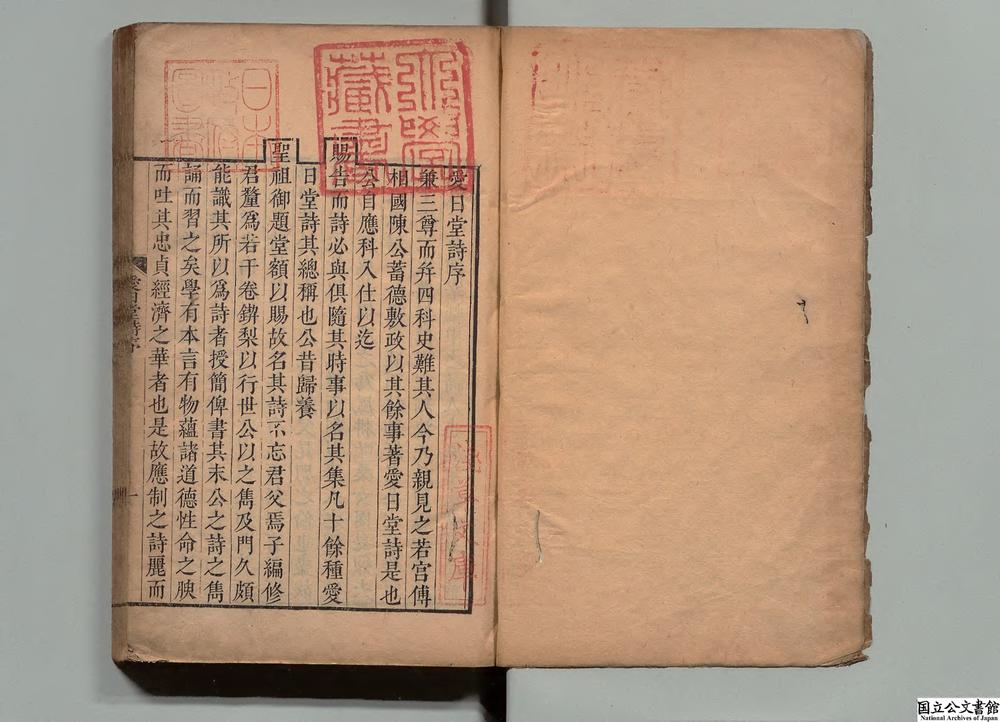 愛日堂詩序
兼三尊而并四科史難其人今乃親見之若宮傅
相國陳公蓄德敷政以其餘事著愛日堂詩是也
公自應科入仕以迄
賜告而詩必與俱隨其時事以名其集凡十餘種愛
日堂詩其總稱也公昔歸養
聖祖御題堂額以賜故名其詩不忘君父焉子編修
君釐為若干卷鍥梨以行世公以之雋及門久頗
能識其所以為詩者授簡俾書其末公之詩之雋
誦而習之矣學有本言有物蘊諸道德性命之腴
而吐其忠貞經濟之華者也是故應制之詩麗而
愛日堂詩序
一
藏書
日本
政府
圖書
文庫
国立公文書館
National Archives of Japan